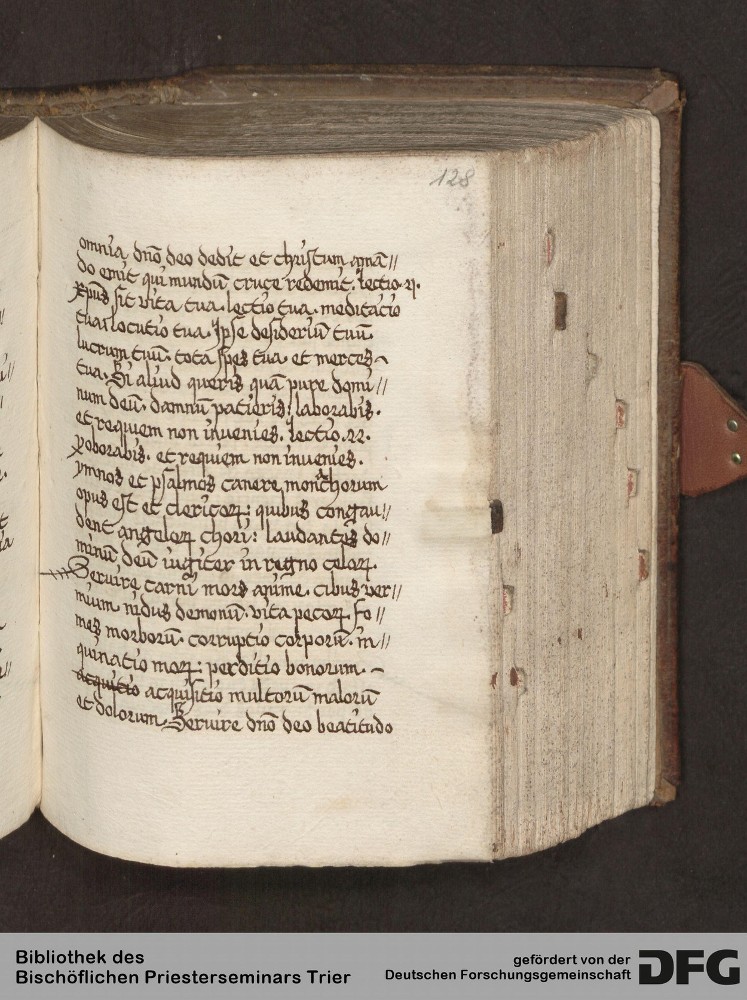 128
omnia dn̄o deo dedit et christum amā//
do emit qui mundū cruce redemit. lectio. 21.
xp̄us sit vita tua. lectio tua. meditatio
tua. locutio tua. Ipse desideriū tuū
lucrum tuū. tota spes tua. et merces
tua. Si aliud queris quā pure domi//
num deū. damnū patieris: laborabis.
et requiem non invenies. lectio. 22.
oborabis. et requiem non invenies.
ymnos et psalmos canere monachorum
opus est et clericoꝝ: quibus congau//
dent angeloꝝ chori: laudantes do//
minū deū iugiter in regno celoꝝ.
Servire carni mors anime. cibus ver//
mium nidus demonū. vita pecoꝝ. fo//
mes morborū. corruptio corporū. in//
quinatio moꝝ: perditio bonorum.
acquitio acquisitio multorū malorū
et dolorum. Servire dn̄o deo beatitudo
Bibliothek des
Bischöflichen Priesterseminars Trier
gefördert von der
Deutschen Forschungsgemeinschaft
DFG